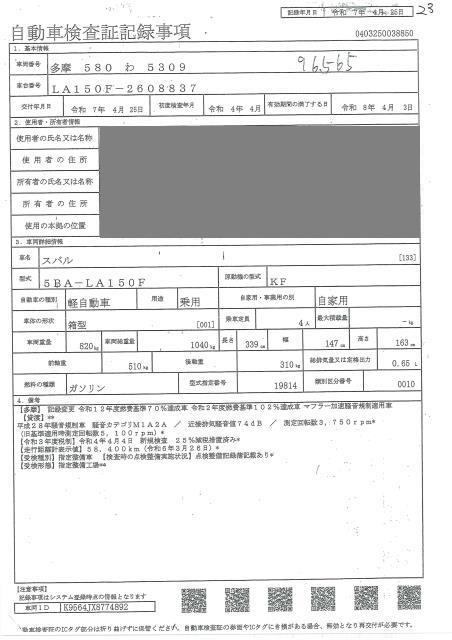 記録年月日 令和 7年 4月 25日 23
自動車検査証記録事項 0403250038850
1. 基本情報
車両番号 多摩 580 わ 5309 96,565
車台番号 LA150F-2608837
交付年月日 令和 7年 4月 25日 初度検査年月 令和 4年 4月 有効期間の満了する日 令和 8年 4月 3日
2. 使用者・所有者情報
使用者の氏名又は名称
使用者の住所
所有者の氏名又は名称
所有者の住所
使用の本拠の位置
3. 車両詳細情報
車名 スバル [133]
型式 5BA-LA150F 原動機の型式 KF
自動車の種別 軽自動車 用途 乗用 自家用・事業用の別 自家用
車体の形状 箱型 [001] 乗車定員 4人 最大積載量 -kg
車両重量 820kg 車両総重量 1040kg 長さ 339cm 幅 147cm 高さ 163cm
前軸重 510kg 後軸重 310kg 総排気量又は定格出力 0.65 L
燃料の種類 ガソリン 型式指定番号 19814 類別区分番号 0010
4. 備考
【多摩】 記録変更 令和12年度燃費基準70%達成車 令和2年度燃費基準102%達成車 マフラー加速騒音規制適用車
【貸渡】**
平成28年騒音規制車 騒音カテゴリM1A2A / 近接排気騒音値74dB / 測定回転数3,750rpm*
(旧基準適用時測定回転数5,100rpm)*
【令和3年度税制】令和4年4月4日 新規検査 25%減税措置済み*
【走行距離計表示値】58,400km(令和6年3月26日)*
【受検種別】指定整備車 【検査時の点検整備実施状況】点検整備記録簿記載あり*
【受検形態】指定整備工場**
【注意事項】
記録事項はシステム登録時点の情報となります
車両ID K9564JX8774892
自動車検査証のICタグ部分は折り曲げずに保管ください。自動車検査証の券面やICタグにき損がある場合、無効となり再交付が必要です。